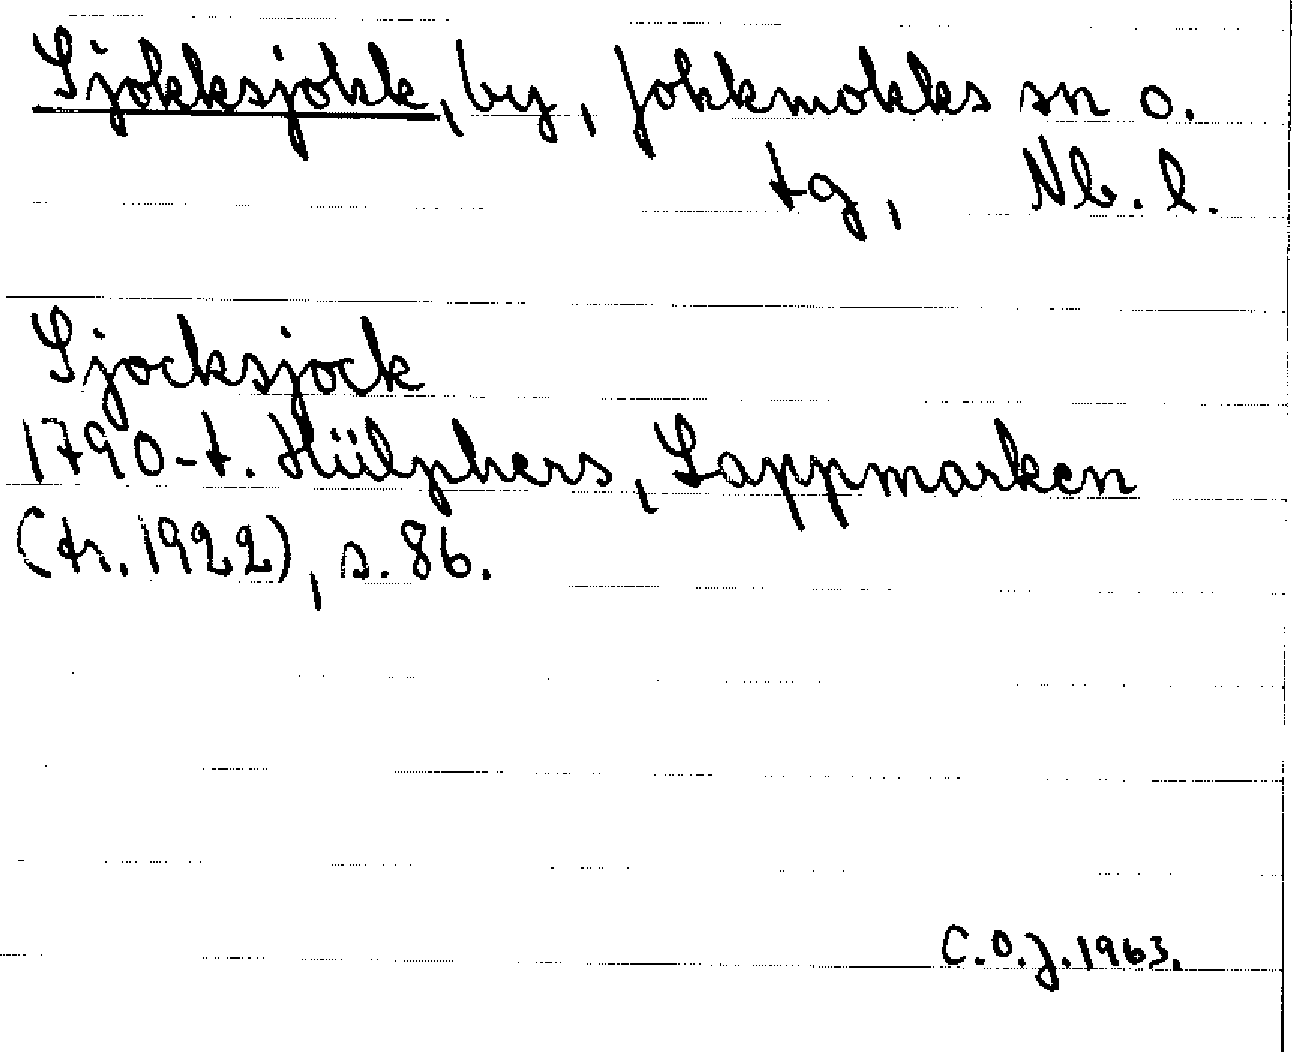 Sjokksjokk, by, Jokkmokks sn o.
tg, Nb. l.
Sjocksjock
1790-t. Hülphers, Lappmarken
(tr. 1922), s. 86.
C.O.J. 1963.